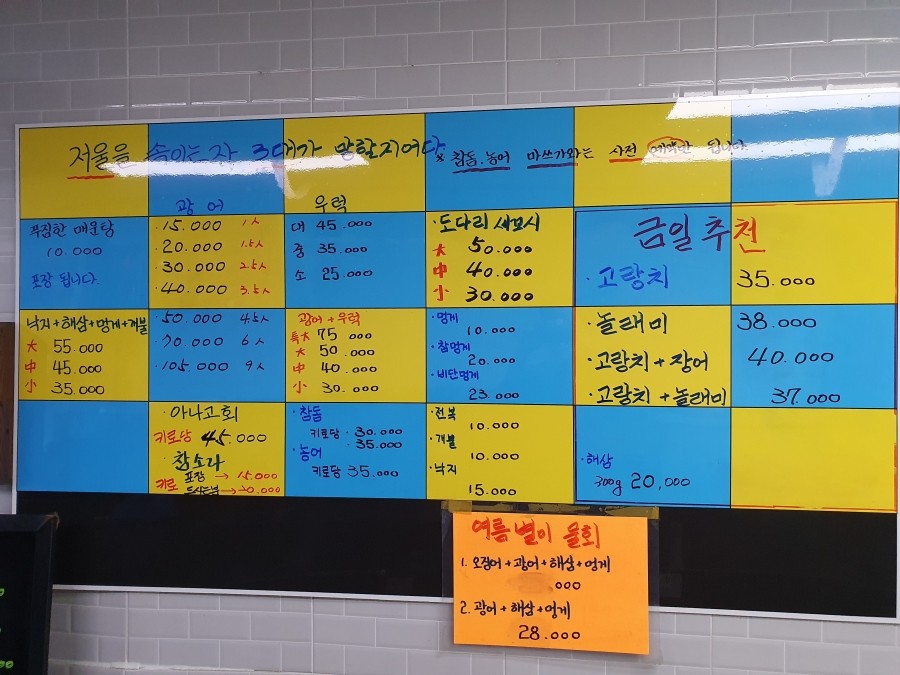 저울을 속이는자 3대가 망할지어다
* 참돔. 농어 마쓰가와는 사전 예약만 됩니다
푸짐한 매운탕
10.000
포장 됩니다.
낙지+해삼+멍게+개불
大 55.000
中 45.000
小 35.000
광어
·15.000 1人
·20.000 1.5人
·30.000 2.5人
·40.000 3.5人
·50.000 4.5人
·70.000 6人
·105.000 9人
·아나고회
키로당 45.000
·참소라
키로 포장 → 15.000
→ 20.000
우럭
대 45.000
중 35.000
소 25.000
광어+우럭
특大 75 000
大 50.000
中 40.000
小 30.000
·참돔
키로당 · 30.000
· 35.000
·농어
키로당 35.000
·도다리 세꼬시
大 50.000
中 40.000
小 30.000
·멍게
10.000
·참멍게
20.000
·비단멍게
23.000
·전복
10.000
·개불
10.000
·낙지
15.000
금일 추천
·고랑치 35.000
·놀래미 38.000
·고랑치+장어 40.000
·고랑치+놀래미 37.000
·해삼
300g 20,000
여름 별미 물회
1. 오징어+광어+해삼+멍게
000
2. 광어+해삼+멍게
28.000